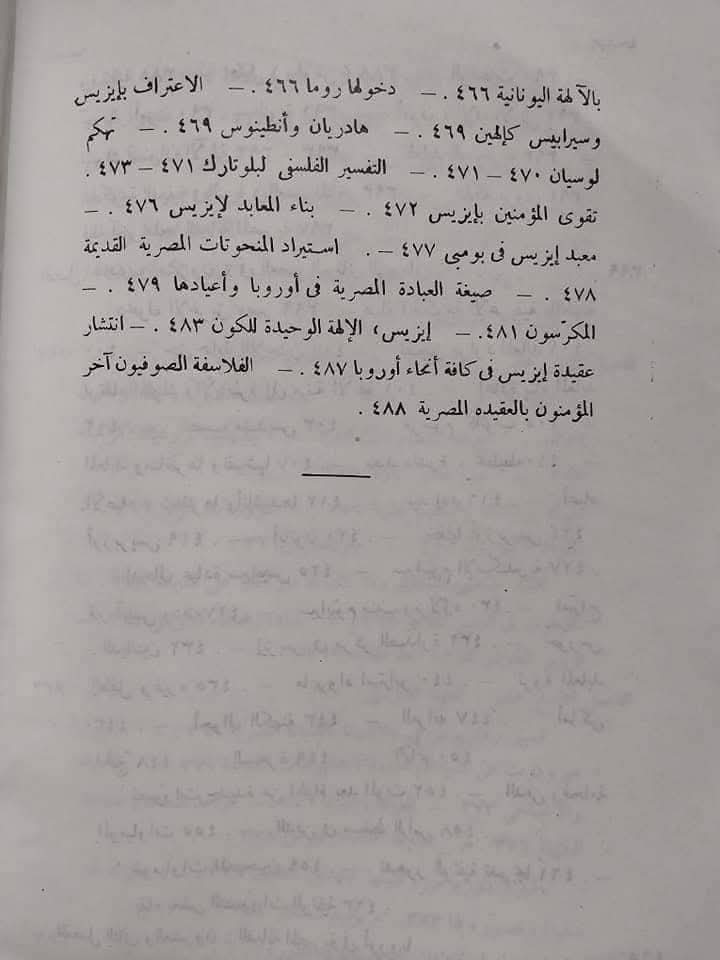 بالآلهة اليونانية ٤٦٦ . — دخولها روما ٤٦٦ . — الاعتراف بإيزيس
وسيرابيس كإلهين ٤٦٩ . — هادريان وأنطينوس ٤٦٩ . — تهكم
لوسيان ٤٧٠ — ٤٧١ . — التفسير الفلسفى لبلوتارك ٤٧١ — ٤٧٣ .
تقوى المؤمنين بإيزيس ٤٧٢ . — بناء المعابد لإيزيس ٤٧٦ . —
معبد إيزيس فى بومبى ٤٧٧ — . استيراد المنحوتات المصرية القديمة
٤٧٨ . — صيغة العبادة المصرية فى أوروبا وأعيادها ٤٧٩ . —
المكرّسون ٤٨١ . — إيزيس، الإلهة الوحيدة للكون ٤٨٣ . — انتشار
عقيدة إيزيس فى كافة أنحاء أوروبا ٤٨٧ . — الفلاسفة الصوفيون آخر
المؤمنون بالعقيده المصرية ٤٨٨ .